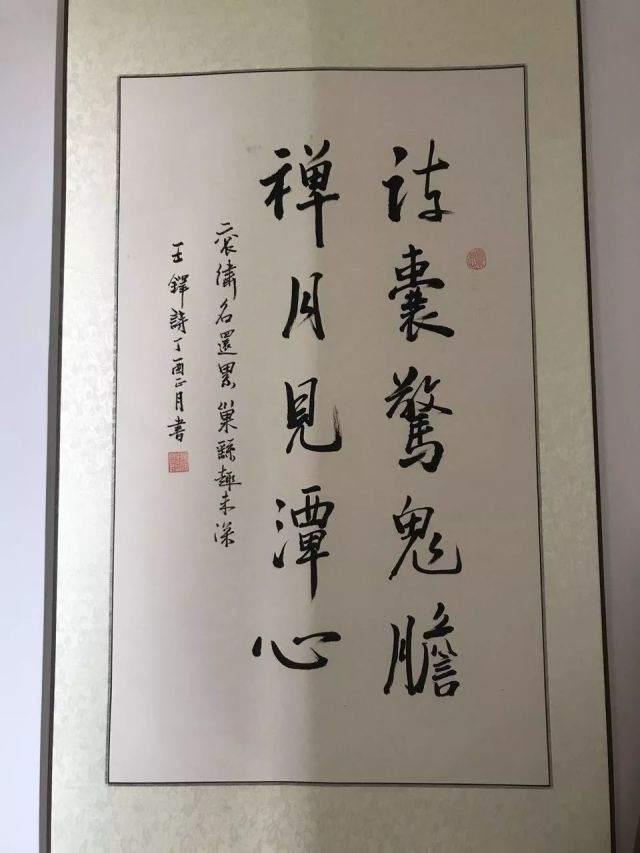 詩囊驚鬼膽
禅月見潭心
衮繡名還累巢繇趣未深
王鐸詩丁酉正月書